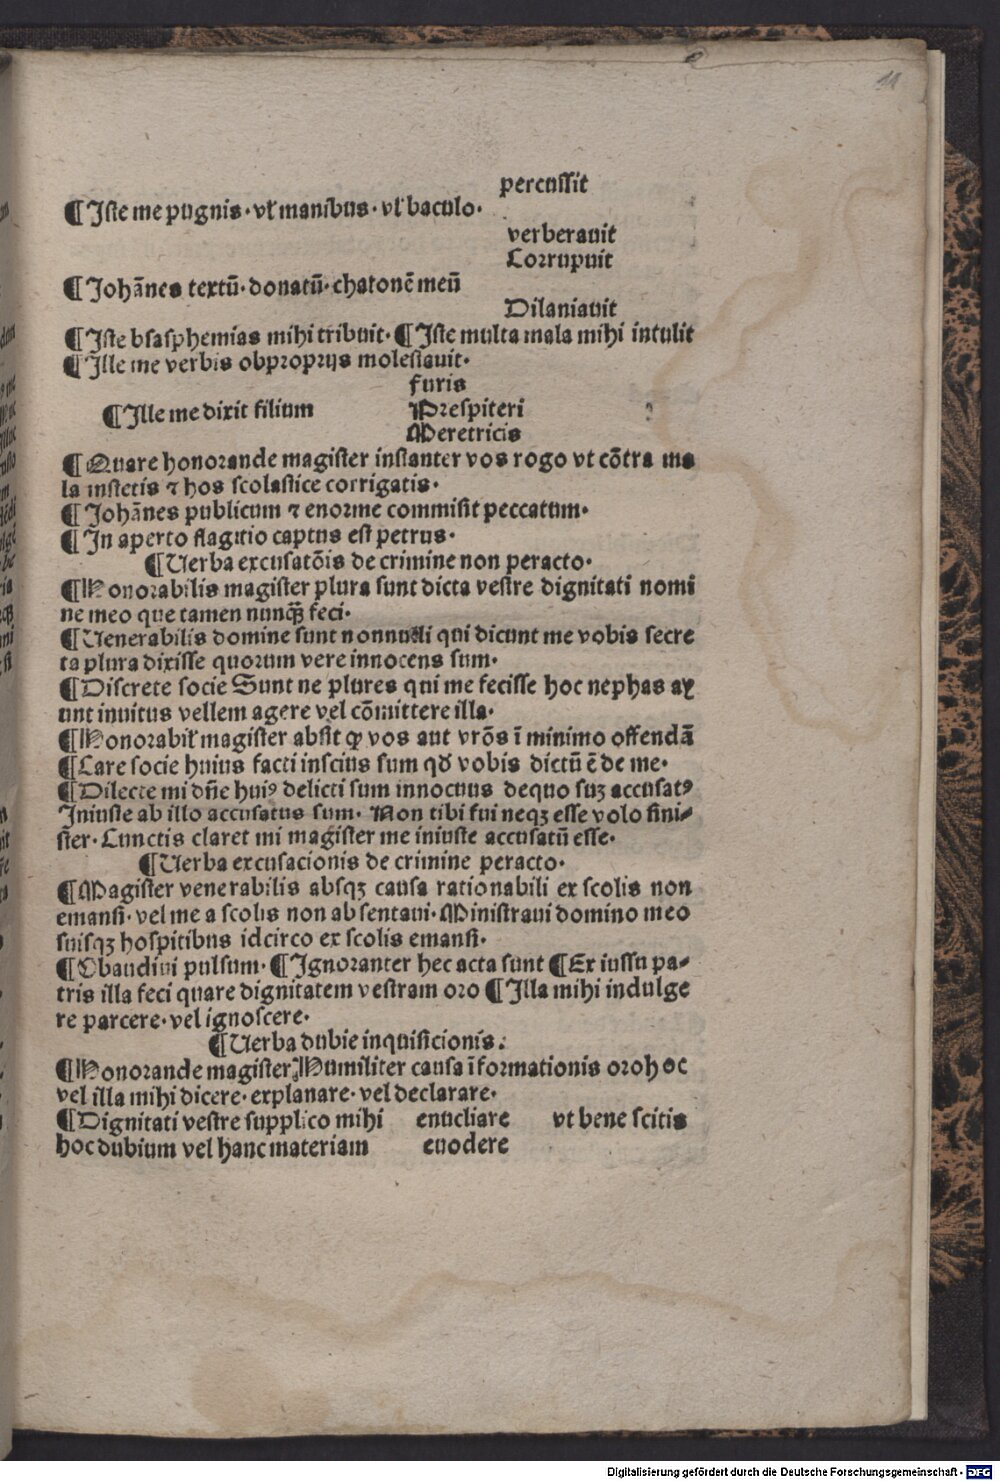 11
percussit
¶ Iste me pugnis · vł manibus · vł baculo ·
verberauit
Corrupuit
¶ Johānes textū · donatū · chatonē meū
Dilaniauit
¶ Iste bsasphemias mihi tribuit · ¶ Iste multa mala mihi intulit
¶ Ille me verbis obproprijs molestauit ·
furis
¶ Ille me dixit filium Prespiteri
Meretricis
¶ Quare honorande magister instanter vos rogo vt cōtra ma
la instetis ⁊ hos scolastice corrigatis ·
¶ Johānes publicum ⁊ enorme commisit peccatum ·
¶ In aperto flagitio captus est petrus ·
¶ Uerba excusatōis de crimine non peracto ·
¶ Honorabilis magister plura sunt dicta vestre dignitati nomi
ne meo que tamen nunqꝫ̄ feci ·
¶ Uenerabilis domine sunt nonnulli qui dicunt me vobis secre
ta plura dixisse quorum vere innocens sum ·
¶ Discrete socie Sunt ne plures qui me fecisse hoc nephas ay
unt inuitus vellem agere vel cōmittere illa ·
¶ Honorabił magister absit ꝙ vos aut vrōs ī minimo offendā
¶ Care socie huius facti inscius sum qđ vobis dictū ē de me ·
¶ Dilecte mi dn̄e huiꝰ delicti sum innocuus de quo suꝫ accusatꝰ
Iniuste ab illo accusatus sum · Non tibi fui neqꝫ esse volo sini⸗
ster · Cunctis claret mi magister me iniuste accusatū esse ·
¶ Uerba excusacionis de crimine peracto ·
¶ Magister venerabilis absqꝫ causa rationabili ex scolis non
emansi · vel me a scolis non absentaui · Ministraui domino meo
suisqꝫ hospitibus idcirco ex scolis emansi ·
¶ Obaudiui pulsum · ¶ Ignoranter hec acta sunt ¶ Ex iussu pa⸗
tris illa feci quare dignitatem vestram oro ¶ Illa mihi indulge
re parcere · vel ignoscere ·
¶ Uerba dubie inquisicionis :
¶ Honorande magister Humiliter causa īformationis oro hoc
vel illa mihi dicere · explanare · vel declarare ·
¶ Dignitati vestre supplico mihi enucliare vt bene scitis
hoc dubium vel hanc materiam euodere
Digitalisierung gefördert durch die Deutsche Forschungsgemeinschaft - DFG